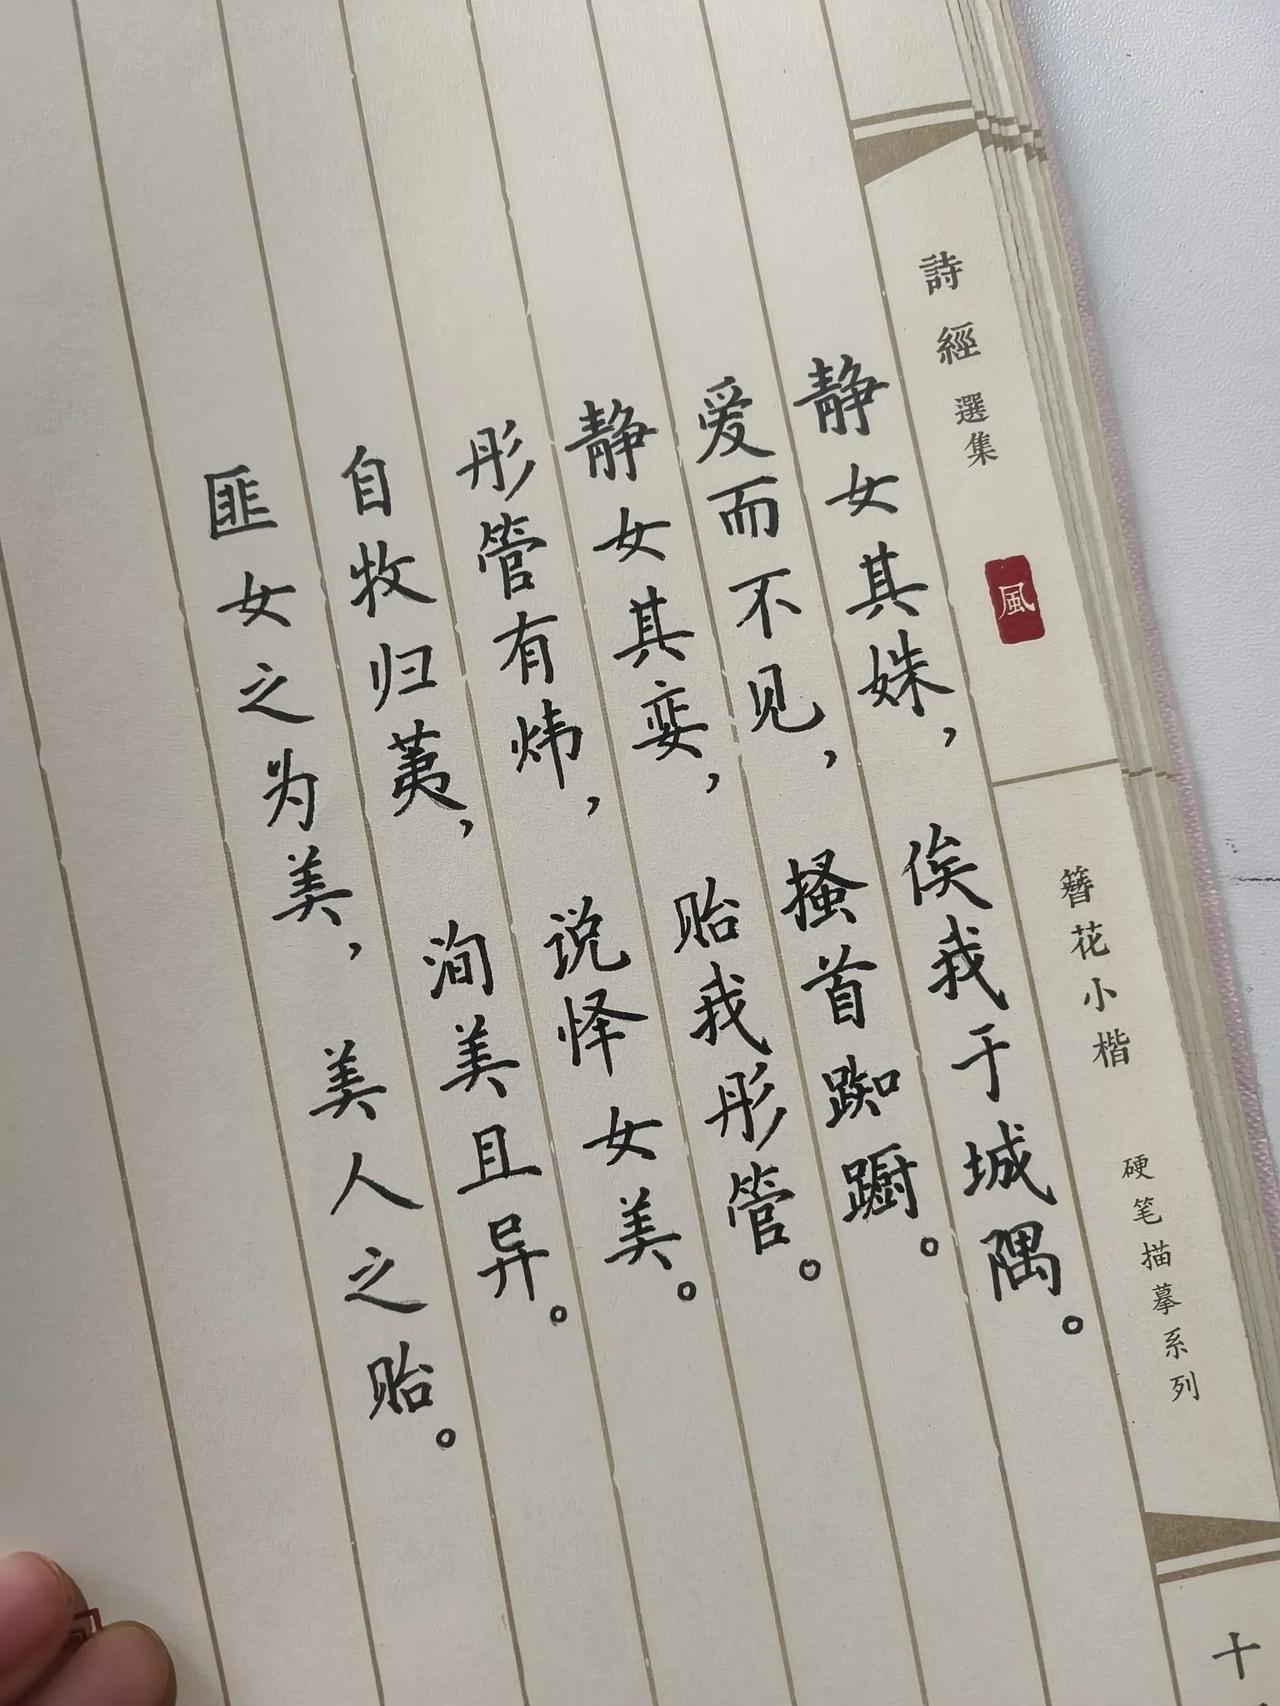 詩經選集
風
簪花小楷
硬笔描摹系列
十
静女其姝，俟我于城隅。
爱而不见，搔首踟蹰。
静女其娈，贻我彤管。
彤管有炜，说怿女美。
自牧归荑，洵美且异。
匪女之为美，美人之贻。